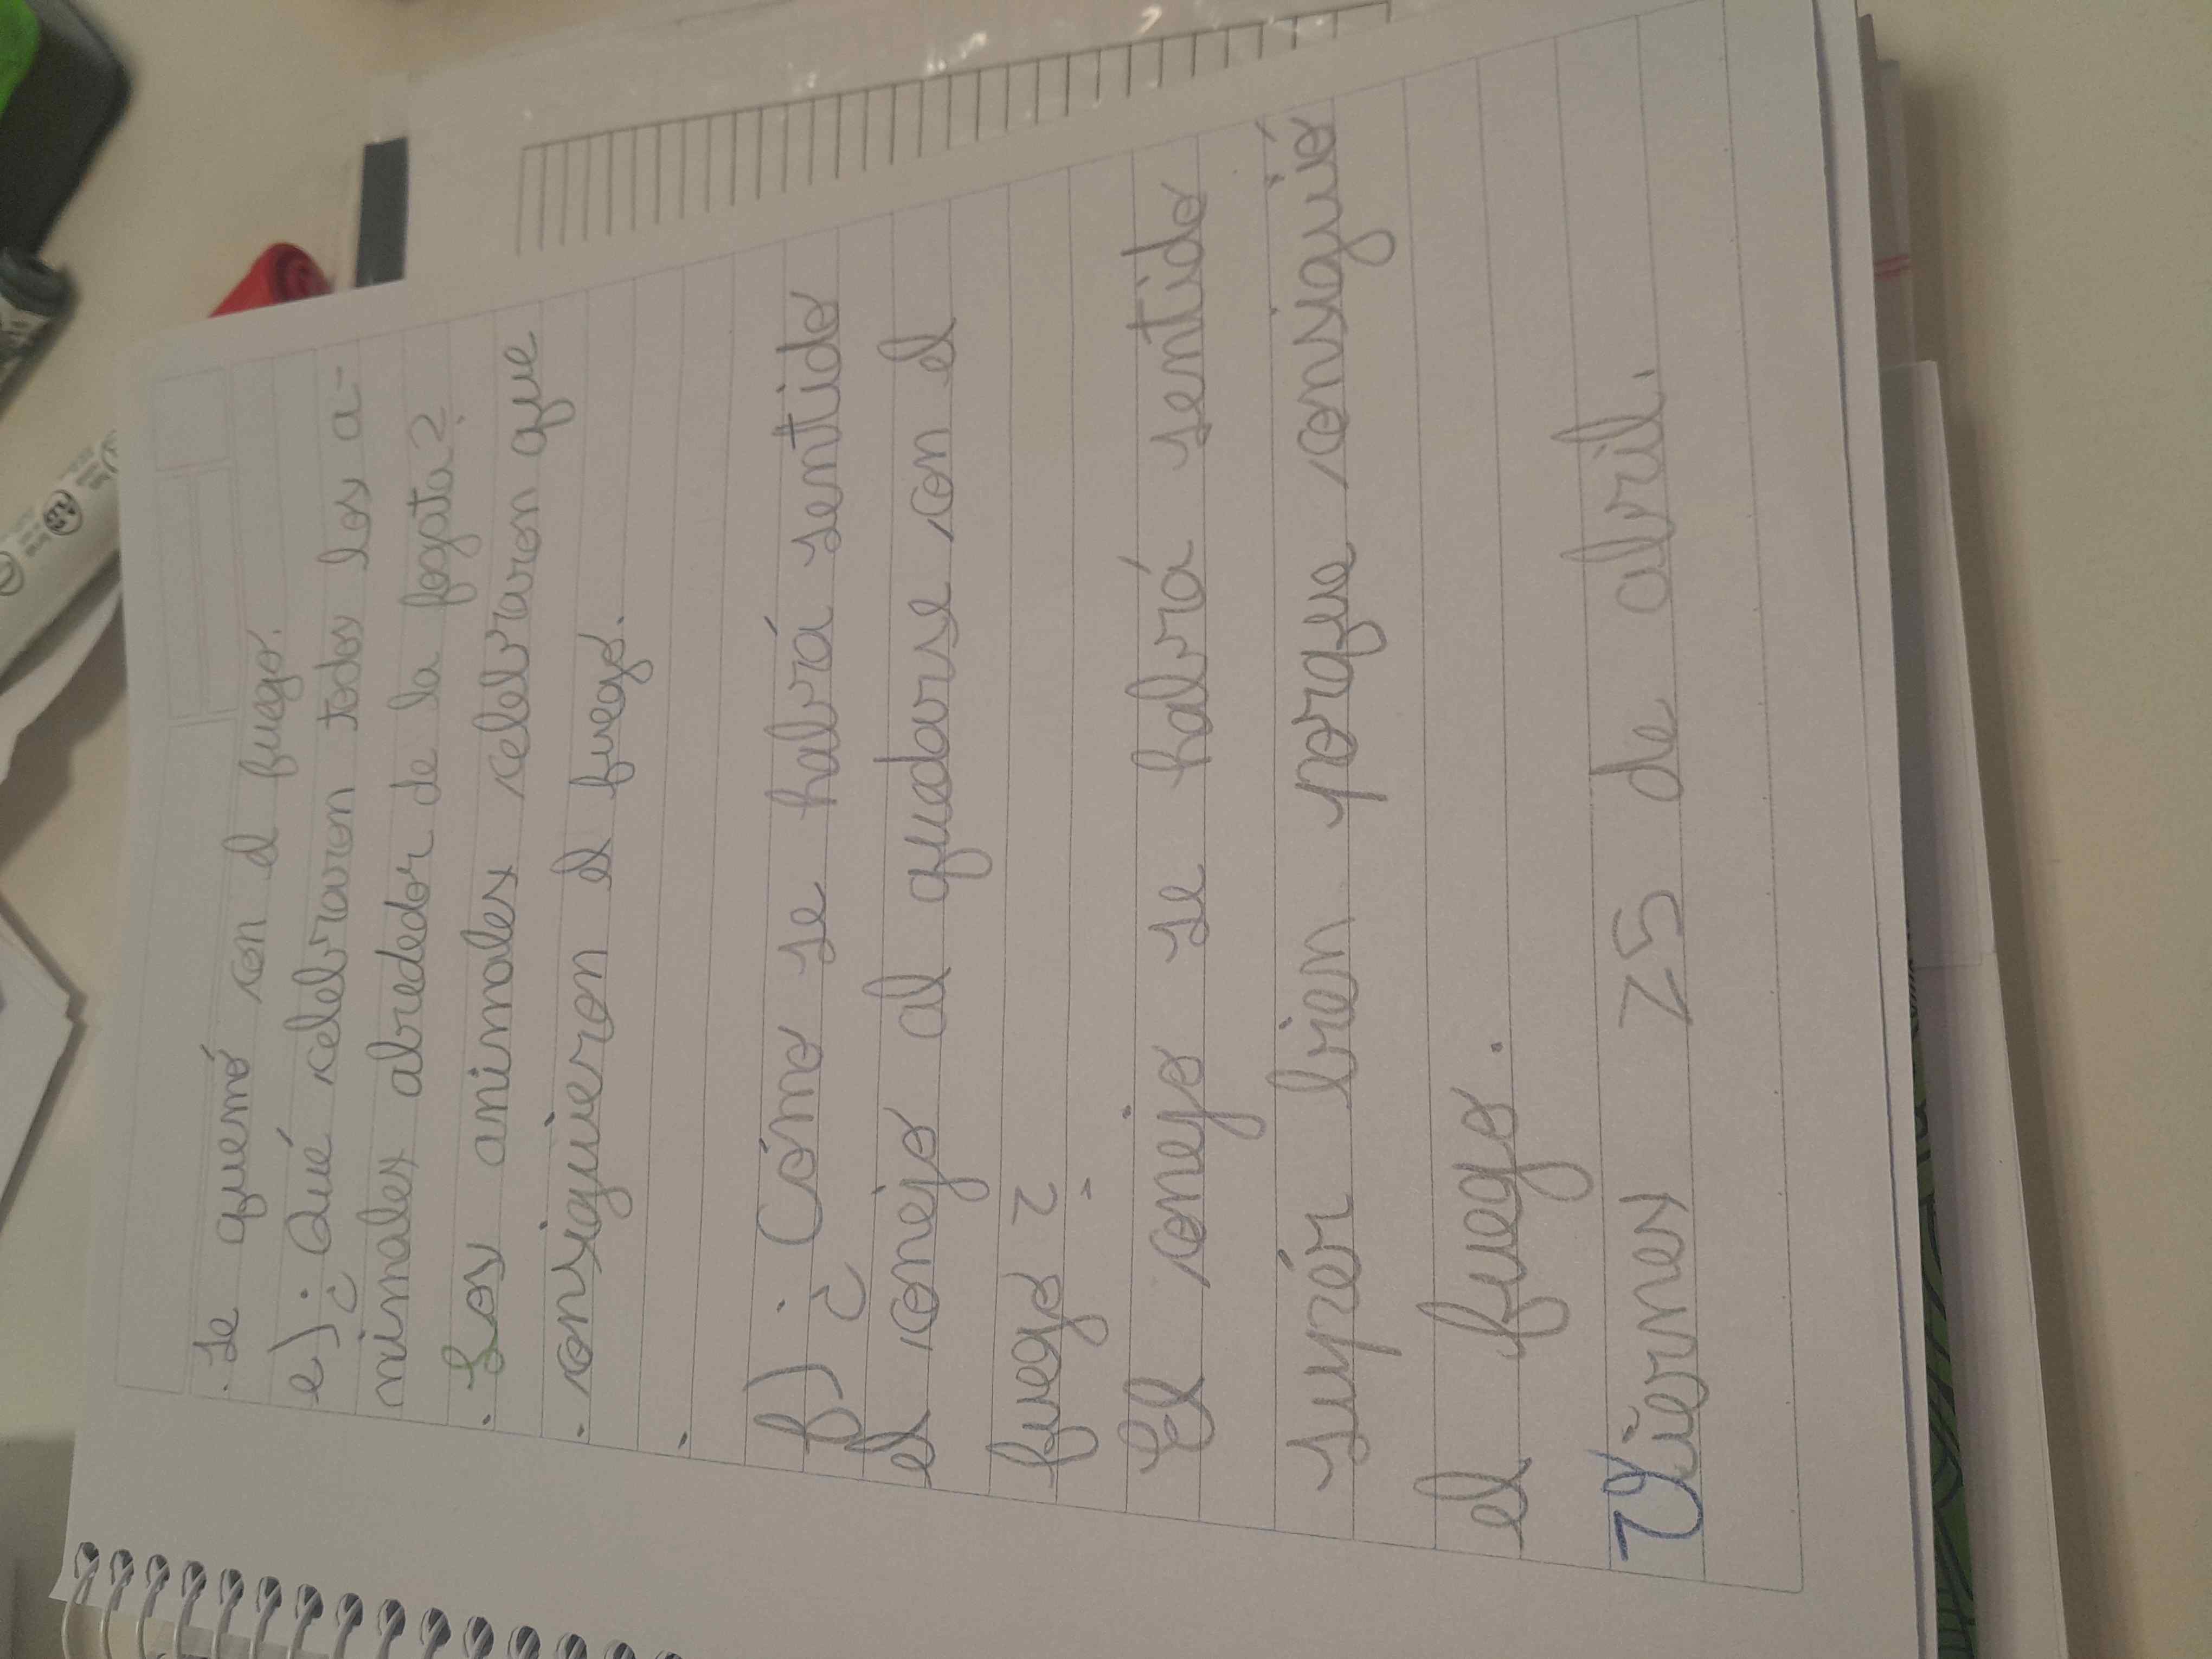 . se quemó con el fuego.
e). ¿Qué celebraron todos los a-
nimales alrededor de la fogata?
. Los animales celebraron que
. consiguieron el fuego.
.
f). ¿Cómo se habrá sentido
el conejo al quedarse con el
fuego?
El conejo se habrá sentido
supér bien porque consiguió
el fuego.
Viernes 25 de abril.